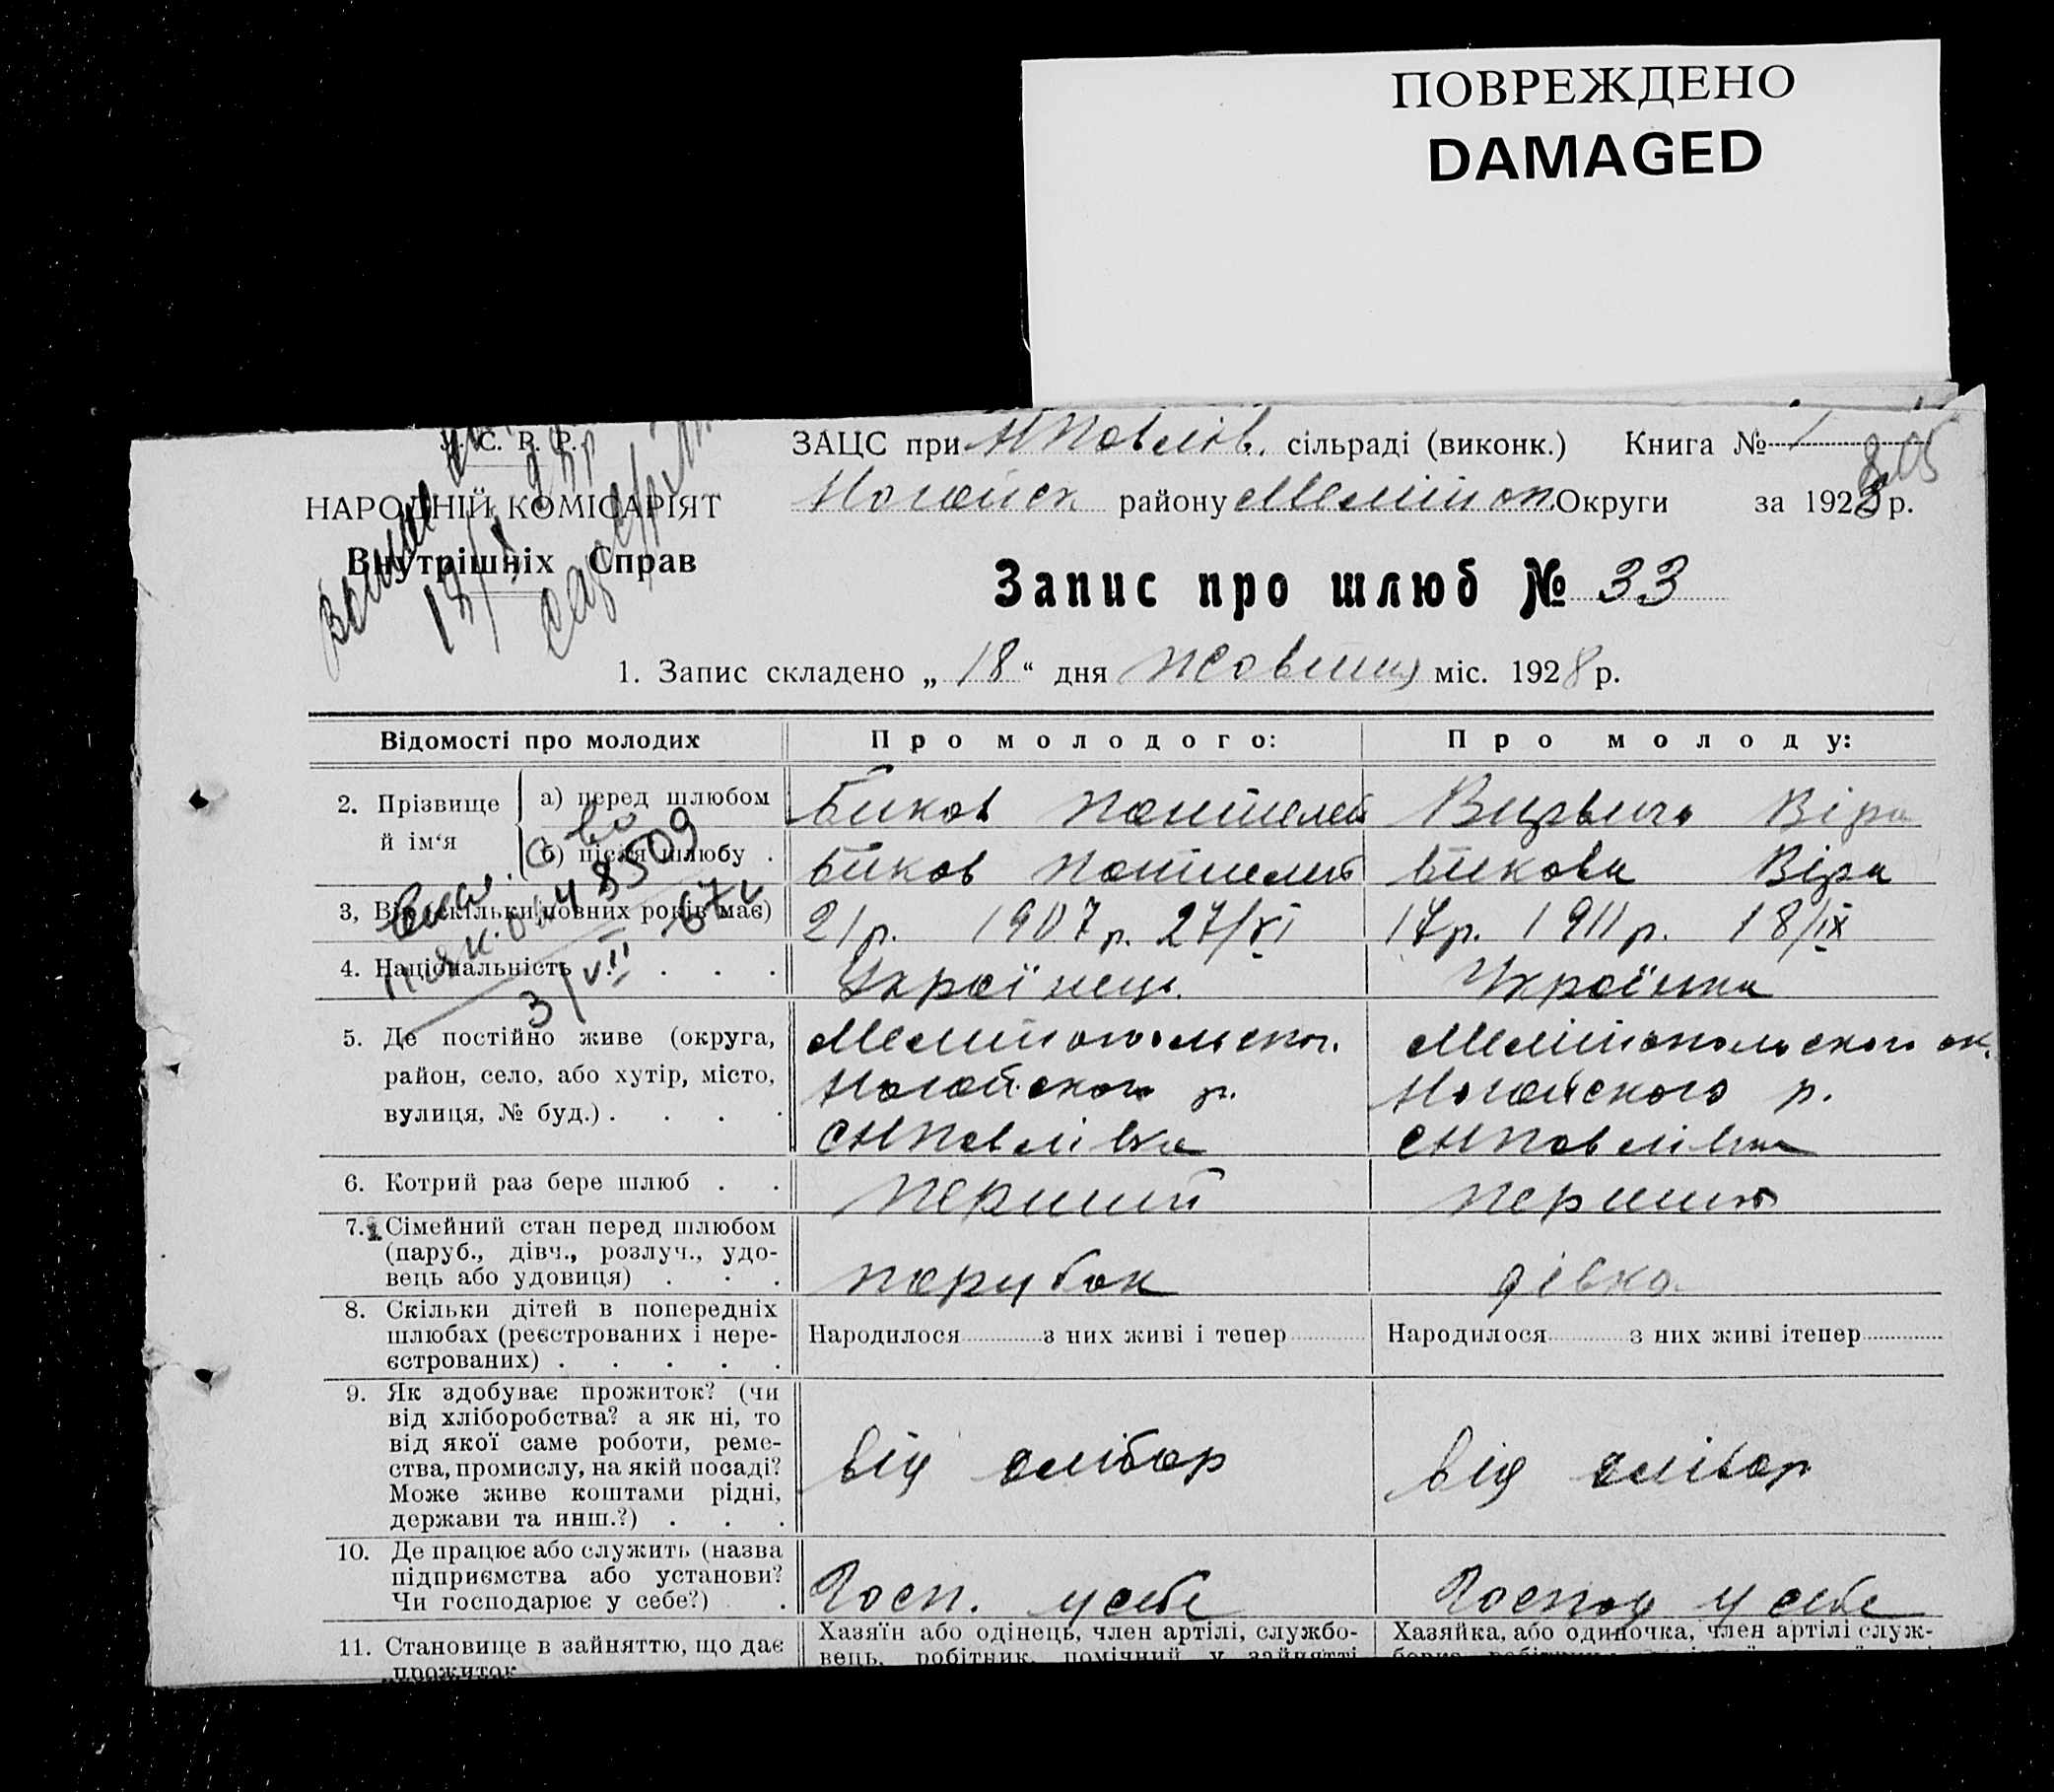 ПОВРЕЖДЕНО
DAMAGED
У. С. Р. Р.
НАРОДНІЙ КОМІСАРІЯТ
Внутрішніх Справ
ЗАЦС при НПовлів. сільраді (виконк.) Книга № 1
Ногайск району Меліtoп Округи за 1928 р.
Запис про шлюб № 33
1. Запис складено „18“ дня Жовтня міс. 1928 р.
Відомості про молодих Про молодого: Про молоду:
2. Прізвище й ім‘я
а) перед шлюбом Биков Пантилей Віра
б) після шлюбу . Биков Пантилей Бикова Віра
3, Вік (скільки повних років має) 21 р. 1907 р. 27/VI 17 р. 1911 р. 18/IX
48509
67 г
3/VII
4. Національність . . . . Українець Українка
5. Де постійно живе (округа, Мелітопольског. Мелітопольского ок.
район, село, або хутір, місто, Ногайского р. Ногайского р.
вулиця, № буд.) . . . . СНПовлівка СНПовлівка
6. Котрий раз бере шлюб . . перший перший
7. Сімейний стан перед шлюбом
(паруб., дівч., розлуч., удо-
вець або удовиця) . . . парубок дівка
8. Скільки дітей в попередніх
шлюбах (реєстрованих і нере- Народилося з них живі і тепер Народилося з них живі ітепер
єстрованих) . . . . .
9. Як здобуває прожиток? (чи
від хліборобства? а як ні, то
від якої саме роботи, реме-
ства, промислу, на якій посаді? від хлібор від хлібор
Може живе коштами рідні,
держави та инш.?) . . .
10. Де працює або служить (назва
підприємства або установи?
Чи господарює у себе?) . Госп. у себе Господ у себе
11. Становище в зайняттю, що дає Хазяїн або одінець, член артілі, службо- Хазяйка, або одиночка, член артілі служ-
прожиток вець, робітник, помічний у зайнятті